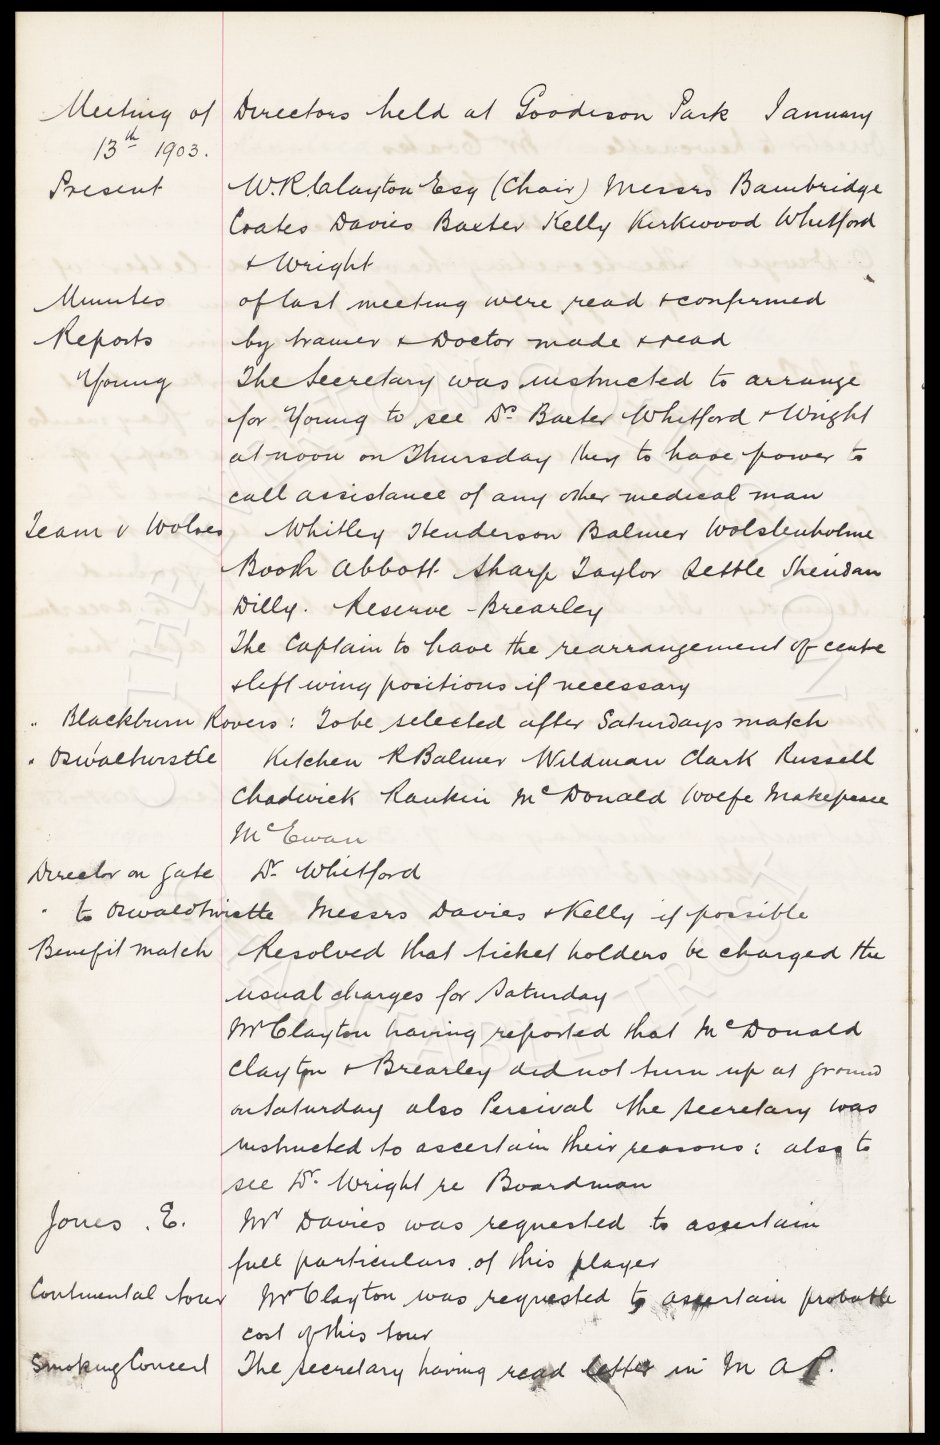 Meeting of Directors held at Goodison Park January
13th 1903.
Present W.R. Clayton Esq (Chair) Messrs Bainbridge
Coates Davies Baxter Kelly Kirkwood Whitford
& Wright
Minutes of last meeting were read & confirmed
Reports by trainer & Doctor made & read
Young The Secretary was instructed to arrange
for Young to see Drs Baxter Whitford & Wright
at noon on Thursday they to have power to
call assistance of any other medical man
Team v Wolves Whitley Henderson Balmer Wolstenholme
Booth Abbott Sharp Taylor Settle Sheridan
Dilly. Reserve - Brearley
The Captain to have the rearrangement of centre
& left wing positions if necessary
" Blackburn Rovers : To be selected after Saturdays match
" Oswaltwistle Kitchen R Balmer Wildman Clark Russell
Chadwick Rankin McDonald Wolfe Makepeace
McEwan
Director on gate Dr Whitford
" to Oswaldtwistle Messrs Davies & Kelly if possible
Benefit match Resolved that ticket holders be charged the
usual charges for Saturday
Mr Clayton having reported that McDonald
Clayton & Brearley did not turn up at ground
on Saturday also Percival the Secretary was
instructed to ascertain their reasons : also to
see Dr. Wright re Boardman
Jones . E. Mr Davies was requested to ascertain
full particulars of this player
Continental tour Mr Clayton was requested to ascertain probable
cost of this tour
Smoking Concert The Secretary having read letter in M A P.